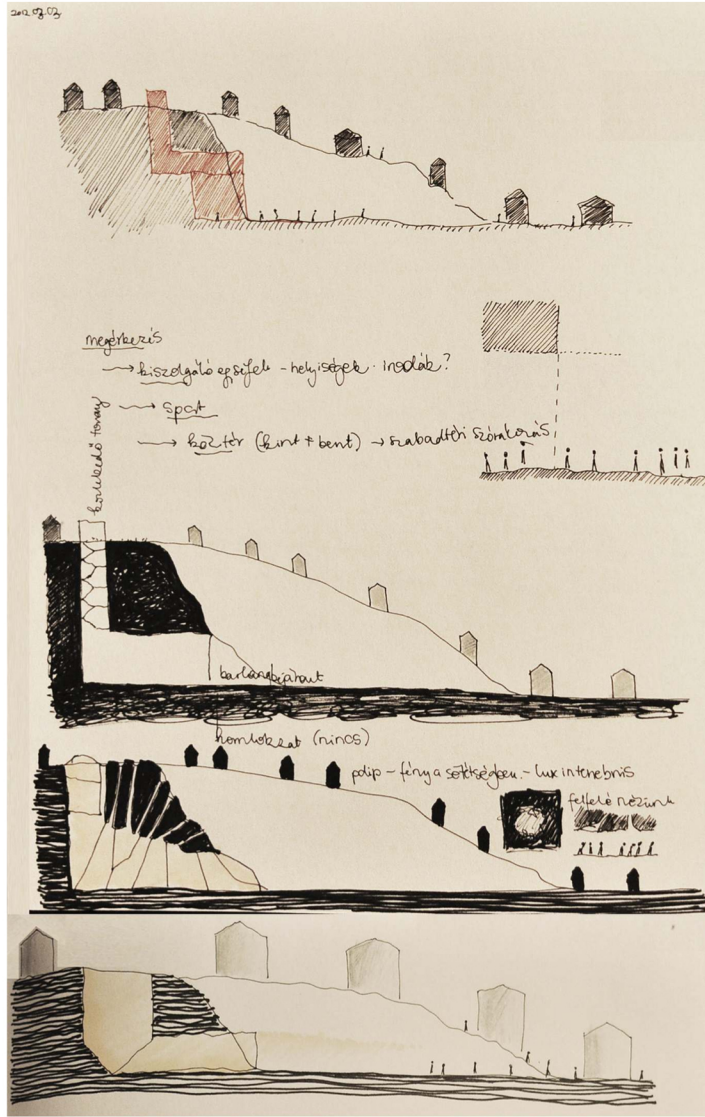 2012.07.03
megérkezés
→ kiszolgáló egységek - helyiségek · irodák?
→ sport
→ köztér (kint + bent) → szabadtéri szórakozás
közlekedő torony
barlangbejárat
homlokzat (nincs)
polip - fény a sötétségben. - lux in tenebris
felfelé nézünk